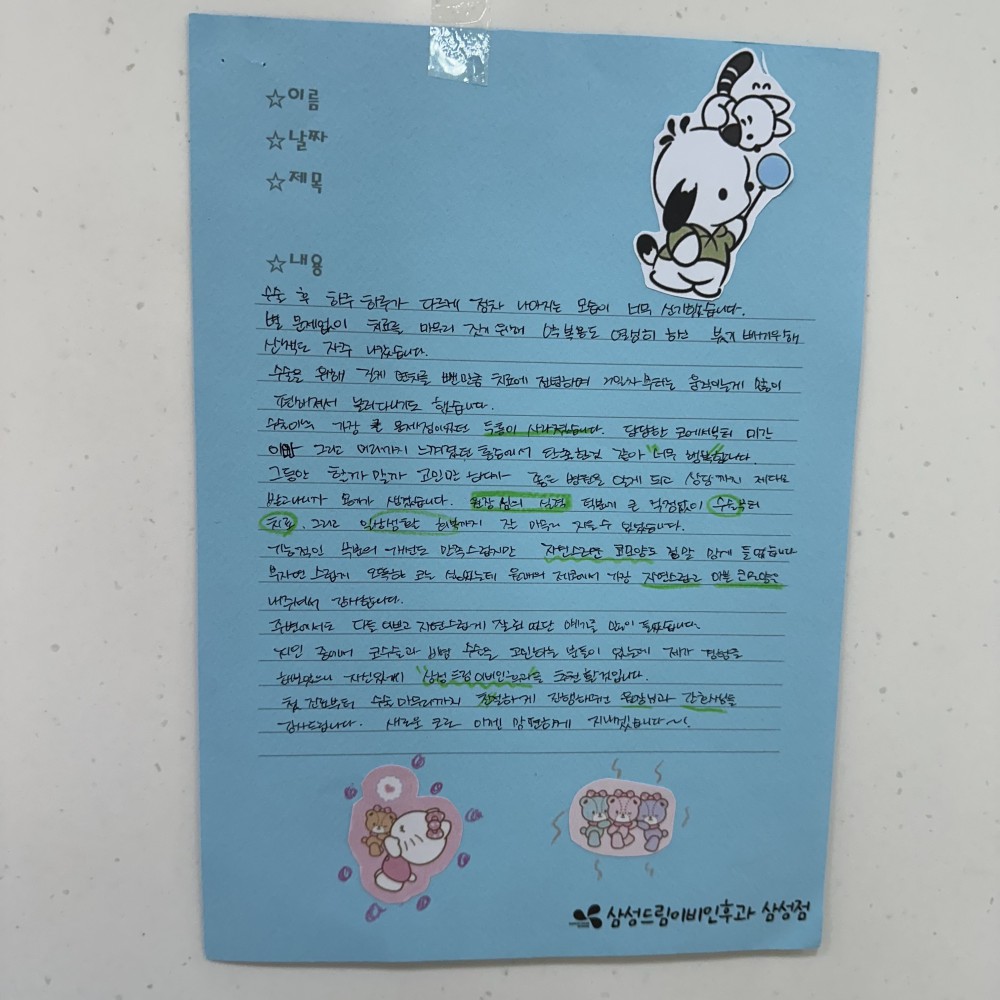 ☆이름
☆날짜
☆제목
☆내용
수술 후 하루 하루가 다르게 점차 나아지는 모습이 너무 신기했습니다.
별 문제없이 치료를 마무리 짓기 위해 약 복용도 열심히 하고 붓기 빼기위해
산책도 자주 나갔습니다.
수술을 위해 길게 연차를 뺀만큼 치료에 전념하며 7일차부터는 움직이는게 많이
편해져서 놀러다니기도 했습니다.
가장 큰 문제점이었던 두통이 사라졌습니다. 답답한 코에서부터 미간
이마 그리고 머리까지 느껴졌던 통증에서 탈출한것 같아 "너무 행복합니다.
그동안 할까 말까 고민만 하다가 좋은 병원을 알게 되고 상담까지 제대로
받고나니까 용기가 생겼습니다. 원장님의 실력 덕분에 큰 걱정없이 수술부터
치료, 그리고 일상생활 회복까지 잘 마무리 지을수 있었습니다.
기능적인 부분의 개선도 만족스럽지만 자연스러운 코모양도 정말 맘에 들었습니다
부자연스럽게 오똑한 코는 싫었는데 원래의 제코에서 가장 자연스럽고 이쁜 코모양을
내주셔서 감사합니다.
주변에서도 다들 이쁘고 자연스럽게 잘 됐단 얘기를 많이 들었습니다.
지인 중에서 코수술과 비염 수술을 고민하는 분들이 있는데 제가 경험을
해보았으니 자신있게 "삼성드림이비인후과"를 추천할것입니다.
첫 진료부터 수술 마무리까지 친절하게 진행해주신 원장님과 간호사님들
감사드립니다. 새로운 코로 이젠 맘편하게 지내겠습니다~!
삼성드림이비인후과 삼성점